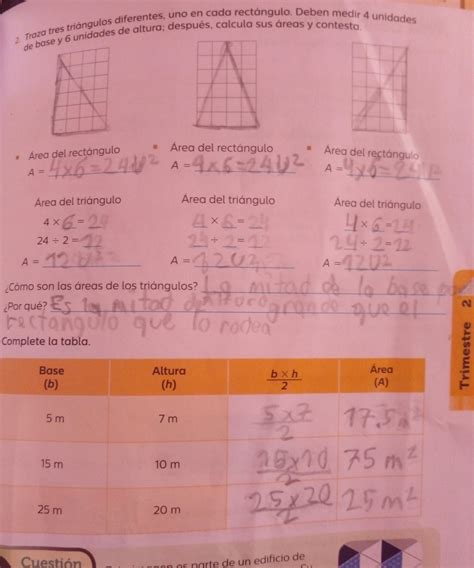 2. Traza tres triángulos diferentes, uno en cada rectángulo. Deben medir 4 unidades
de base y 6 unidades de altura; después, calcula sus áreas y contesta.
Área del rectángulo Área del rectángulo Área del rectángulo
A = 4x6=24U² A = 4x6=24U² A = 4x6=24
Área del triángulo Área del triángulo Área del triángulo
4 × 6 = 24 4 × 6 = 24 4 × 6 = 24
24 ÷ 2 = 12 24 ÷ 2 = 12 24 ÷ 2 = 12
A = 12U² A = 12U² A = 12U²
¿Cómo son las áreas de los triángulos? La mitad de la base por
¿Por qué? Es la mitad del grande que el
rectangulo que lo rodea
Complete la tabla.
Base Altura b × h Área
(b) (h) 2 (A)
5 m 7 m 5x7 17.5 m²
2
15 m 10 m 15x10 75 m²
2
25 m 20 m 25x20 25 m²
2
Trimestre 2
Cuestión
parte de un edificio de